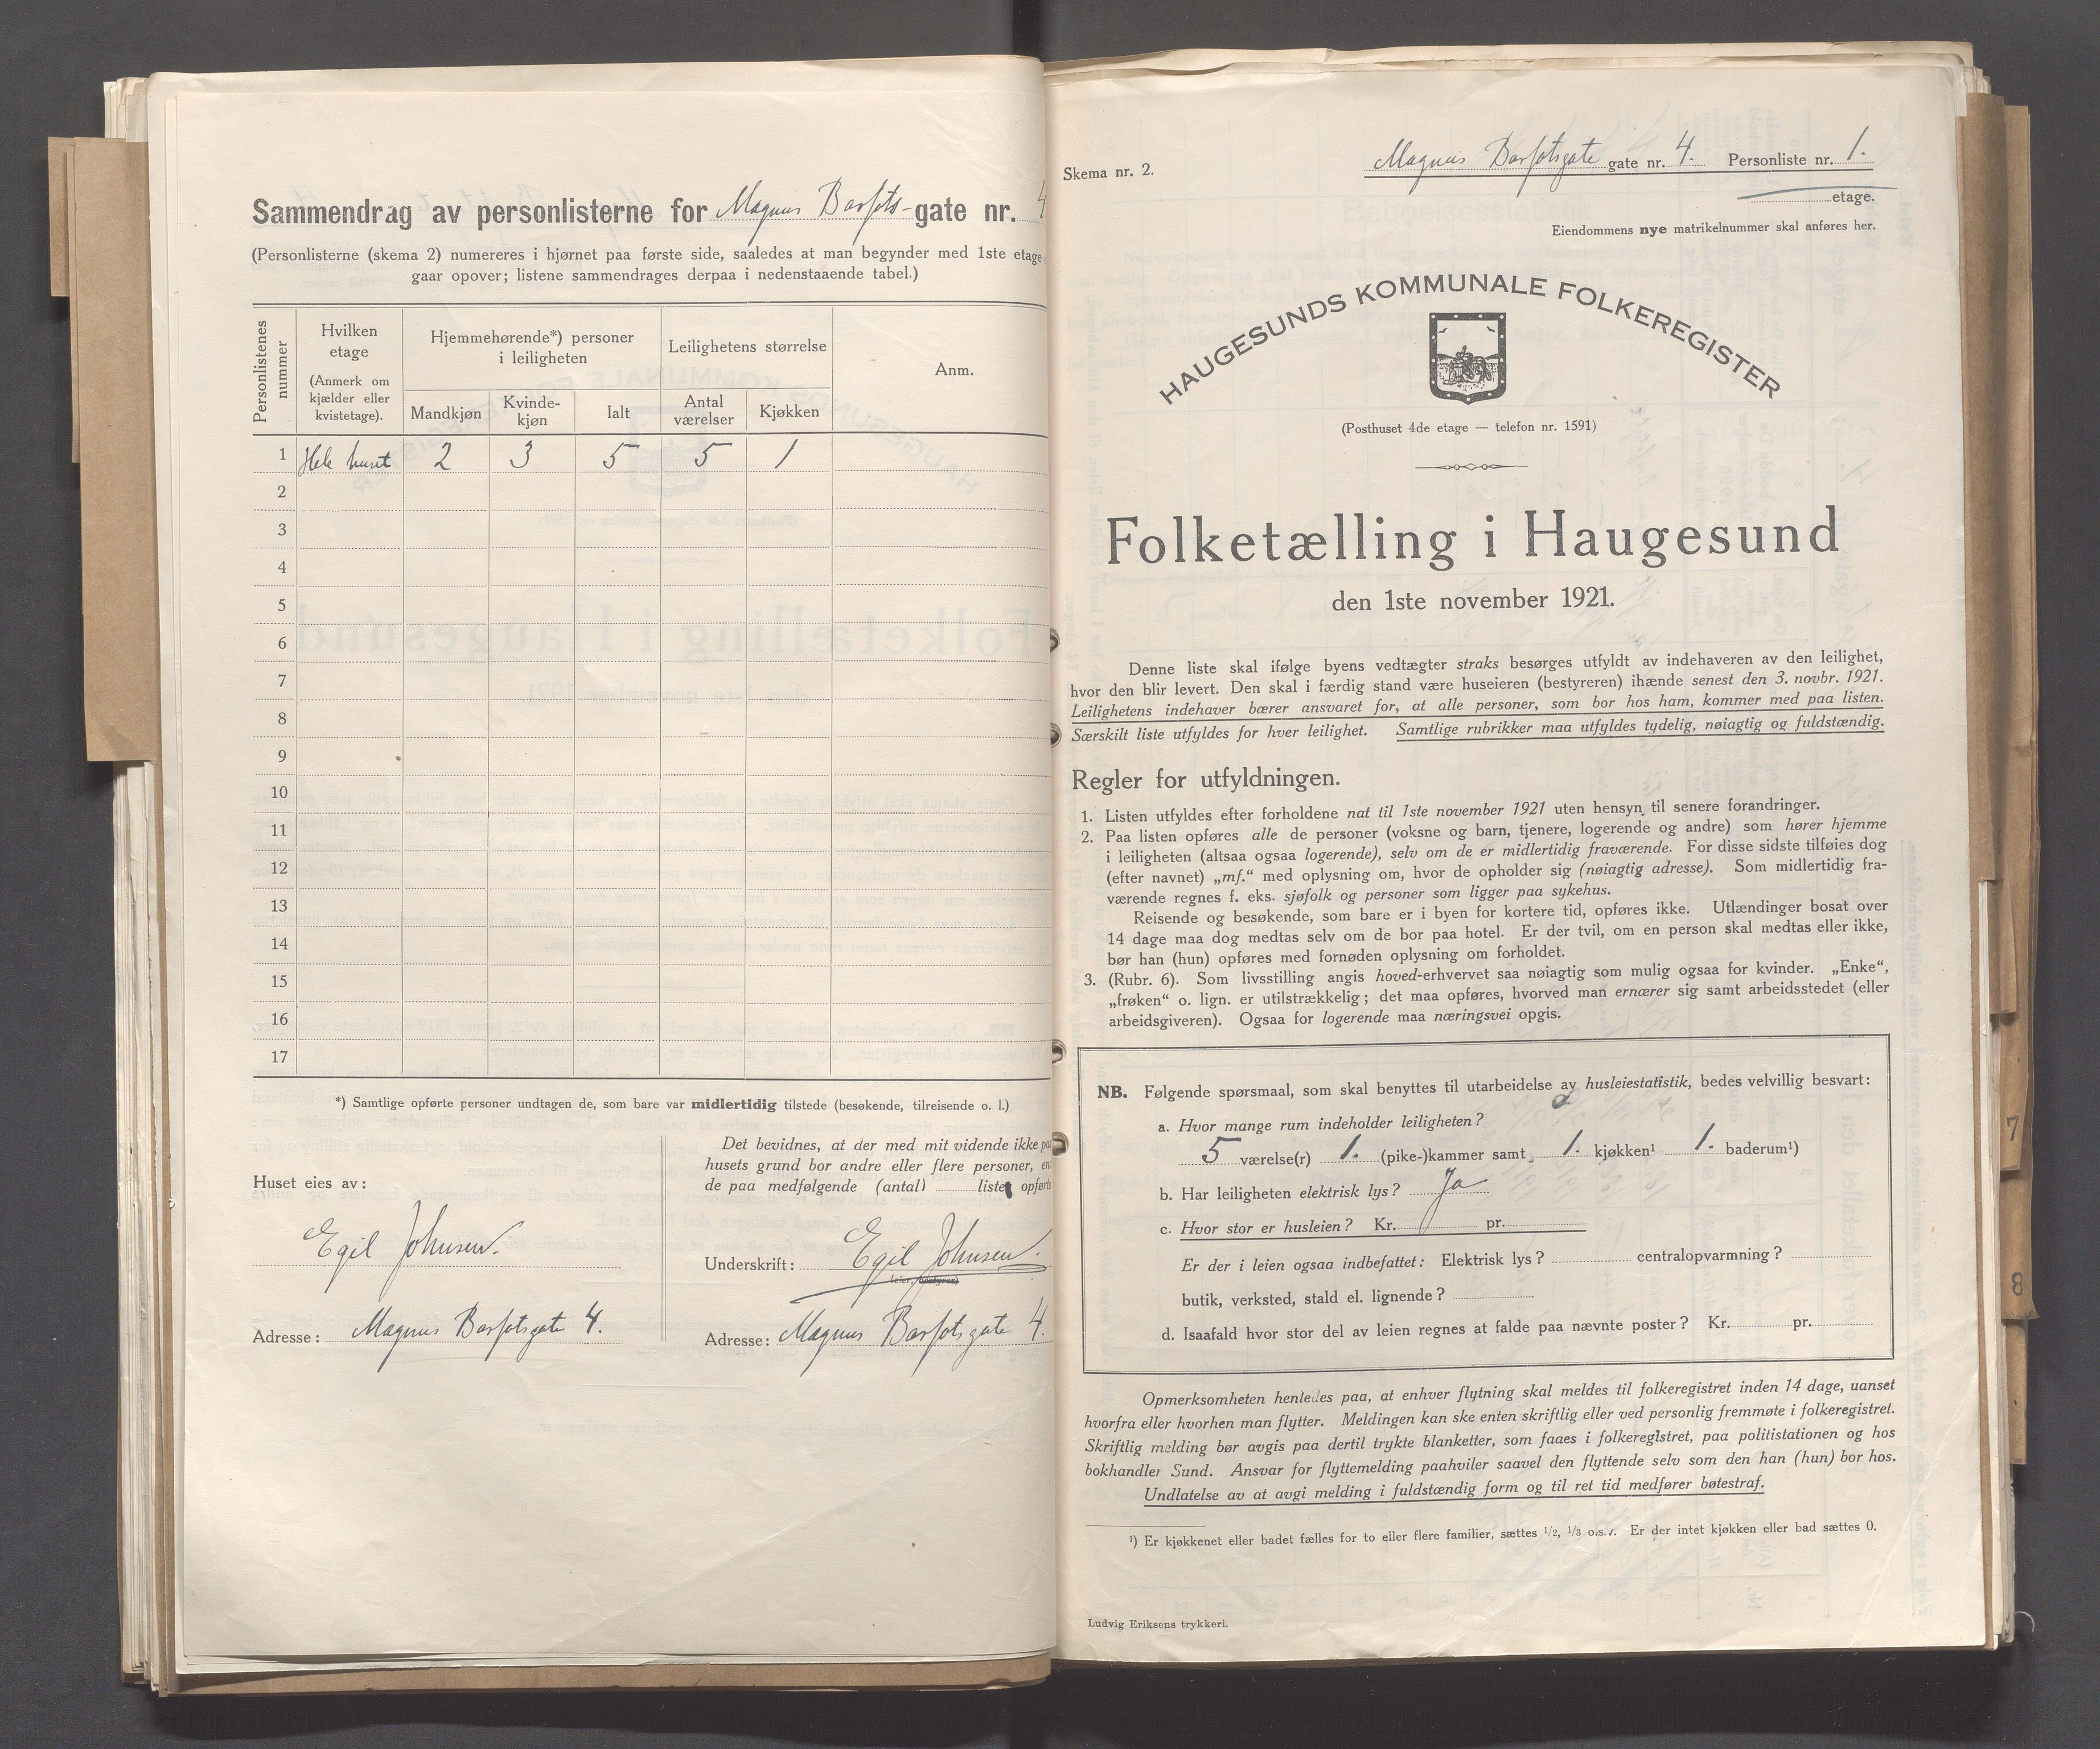 Sammendrag av personlisterne for Magnus Barfots-gate nr. 4
(Personlisterne (skema 2) numereres i hjørnet paa første side, saaledes at man begynder med 1ste etage
gaar opover; listene sammendrages derpaa i nedenstaaende tabel.)
Personlistenes nummer
Hvilken etage
(Anmerk om kjælder eller kvistetage).
Hjemmehørende*) personer i leiligheten
Leilighetens størrelse
Anm.
Mandkjøn
Kvinde-kjøn
Ialt
Antal værelser
Kjøkken
1 Hele huset 2 3 5 5 1
2
3
4
5
6
7
8
9
10
11
12
13
14
15
16
17
*) Samtlige opførte personer undtagen de, som bare var midlertidig tilstede (besøkende, tilreisende o. l.)
Huset eies av:
Egil Johnsen.
Adresse: Magnus Barfotsgate 4.
Det bevidnes, at der med mit vidende ikke paa
husets grund bor andre eller flere personer, end
de paa medfølgende (antal) liste opførte
Underskrift: Egil Johnsen.
(eier, bestyrer)
Adresse: Magnus Barfotsgate 4.
Skema nr. 2.
Magnus Barfotsgate gate nr. 4. Personliste nr. 1.
etage.
Eiendommens nye matrikelnummer skal anføres her.
HAUGESUNDS KOMMUNALE FOLKEREGISTER
(Posthuset 4de etage — telefon nr. 1591)
Folketælling i Haugesund
den 1ste november 1921.
Denne liste skal ifølge byens vedtægter straks besørges utfyldt av indehaveren av den leilighet,
hvor den blir levert. Den skal i færdig stand være huseieren (bestyreren) ihænde senest den 3. novbr. 1921.
Leilighetens indehaver bærer ansvaret for, at alle personer, som bor hos ham, kommer med paa listen.
Særskilt liste utfyldes for hver leilighet. Samtlige rubrikker maa utfyldes tydelig, nøiagtig og fuldstændig.
Regler for utfyldningen.
1. Listen utfyldes efter forholdene nat til 1ste november 1921 uten hensyn til senere forandringer.
2. Paa listen opføres alle de personer (voksne og barn, tjenere, logerende og andre) som hører hjemme
i leiligheten (altsaa ogsaa logerende), selv om de er midlertidig fraværende. For disse sidste tilføies dog
(efter navnet) „mf.“ med oplysning om, hvor de opholder sig (nøiagtig adresse). Som midlertidig fra-
værende regnes f. eks. sjøfolk og personer som ligger paa sykehus.
Reisende og besøkende, som bare er i byen for kortere tid, opføres ikke. Utlændinger bosat over
14 dage maa dog medtas selv om de bor paa hotel. Er der tvil, om en person skal medtas eller ikke,
bør han (hun) opføres med fornøden oplysning om forholdet.
3. (Rubr. 6). Som livsstilling angis hoved-erhvervet saa nøiagtig som mulig ogsaa for kvinder. „Enke“,
„frøken“ o. lign. er utilstrækkelig; det maa opføres, hvorved man ernærer sig samt arbeidsstedet (eller
arbeidsgiveren). Ogsaa for logerende maa næringsvei opgis.
NB. Følgende spørsmaal, som skal benyttes til utarbeidelse av husleiestatistik, bedes velvillig besvart:
a. Hvor mange rum indeholder leiligheten?
5 værelse(r) 1. (pike-)kammer samt 1. kjøkken¹ 1. baderum¹)
b. Har leiligheten elektrisk lys? Ja
c. Hvor stor er husleien? Kr. pr.
Er der i leien ogsaa indbefattet: Elektrisk lys? centralopvarmning?
butik, verksted, stald el. lignende?
d. Isaafald hvor stor del av leien regnes at falde paa nævnte poster? Kr. pr.
Opmerksomheten henledes paa, at enhver flytning skal meldes til folkeregistret inden 14 dage, uanset
hvorfra eller hvorhen man flytter. Meldingen kan ske enten skriftlig eller ved personlig fremmøte i folkeregistret.
Skriftlig melding bør avgis paa dertil trykte blanketter, som faaes i folkeregistret, paa politistationen og hos
bokhandler Sund. Ansvar for flyttemelding paahviler saavel den flyttende selv som den han (hun) bor hos.
Undlatelse av at avgi melding i fuldstændig form og til ret tid medfører bøtestraf.
¹) Er kjøkkenet eller badet fælles for to eller flere familier, sættes 1/2, 1/3 o.s.v. Er der intet kjøkken eller bad sættes 0.
Ludvig Eriksens trykkeri.
7
8